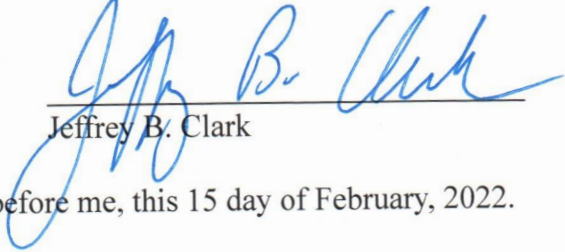 Jeffrey B. Clark
Jeffrey B. Clark
before me, this 15 day of February, 2022.